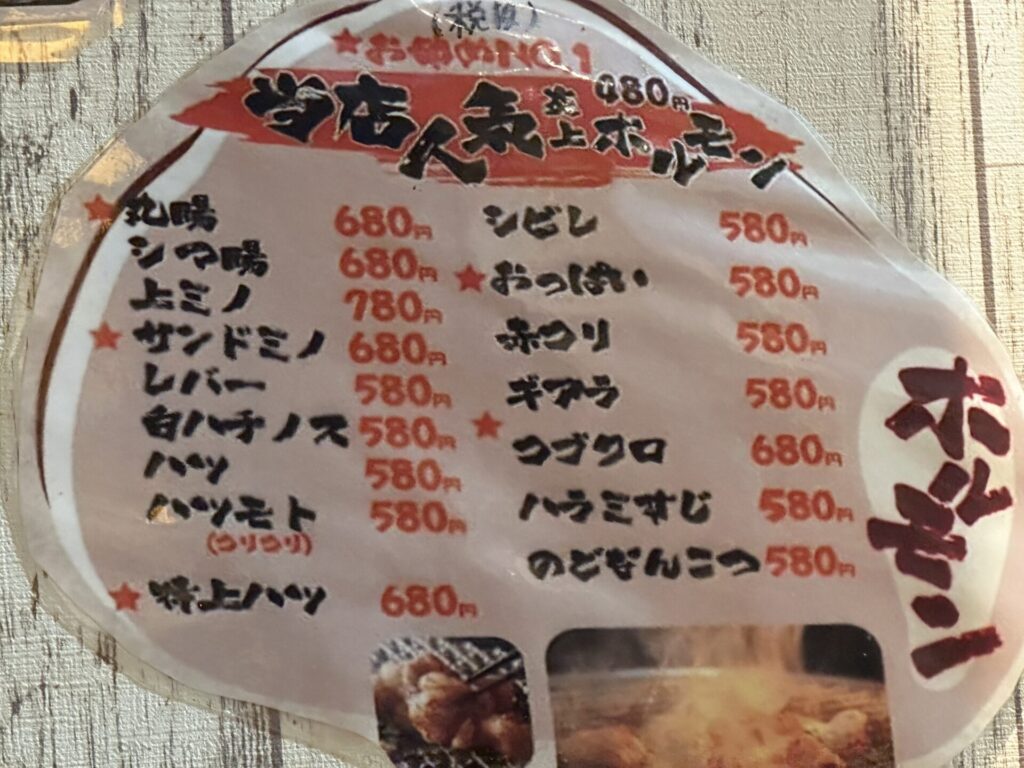 (税抜)
★お勧めNO.1
当店人気 炎上ホルモン 480円
★丸腸 680円
シマ腸 680円
上ミノ 780円
★サンドミノ 680円
レバー 580円
白ハチノス 580円
ハツ 580円
ハツモト 580円
(コリコリ)
★特上ハツ 680円
シビレ 580円
★おっぱい 580円
赤コリ 580円
ギアラ 580円
★コブクロ 680円
ハラミすじ 580円
のどなんこつ 580円
ホルモン